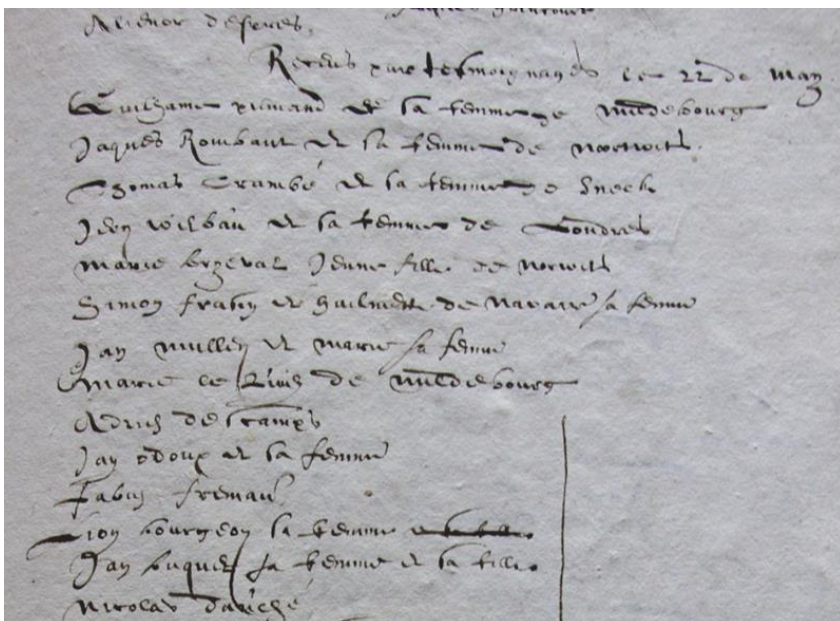 Alienor despres.
Receus par tesmoignages le 22 de May
Guillame et sa femme de Middebourg
Jaques Rombaut et sa femme de nortwits.
Thomas Crambé et sa femme de Sneek
Jan et sa femme de Londres
Marie Jeune fille de Norwits
Simon et Guilmette de Navarre sa femme
Jan Mullen et Marie sa femme
Marie le de Middebourg
Adrien Descamps
Jan odoux et sa femme
Fremau
bourgeon sa femme
Jan buquet sa femme et sa fille
Nicolas Dauché